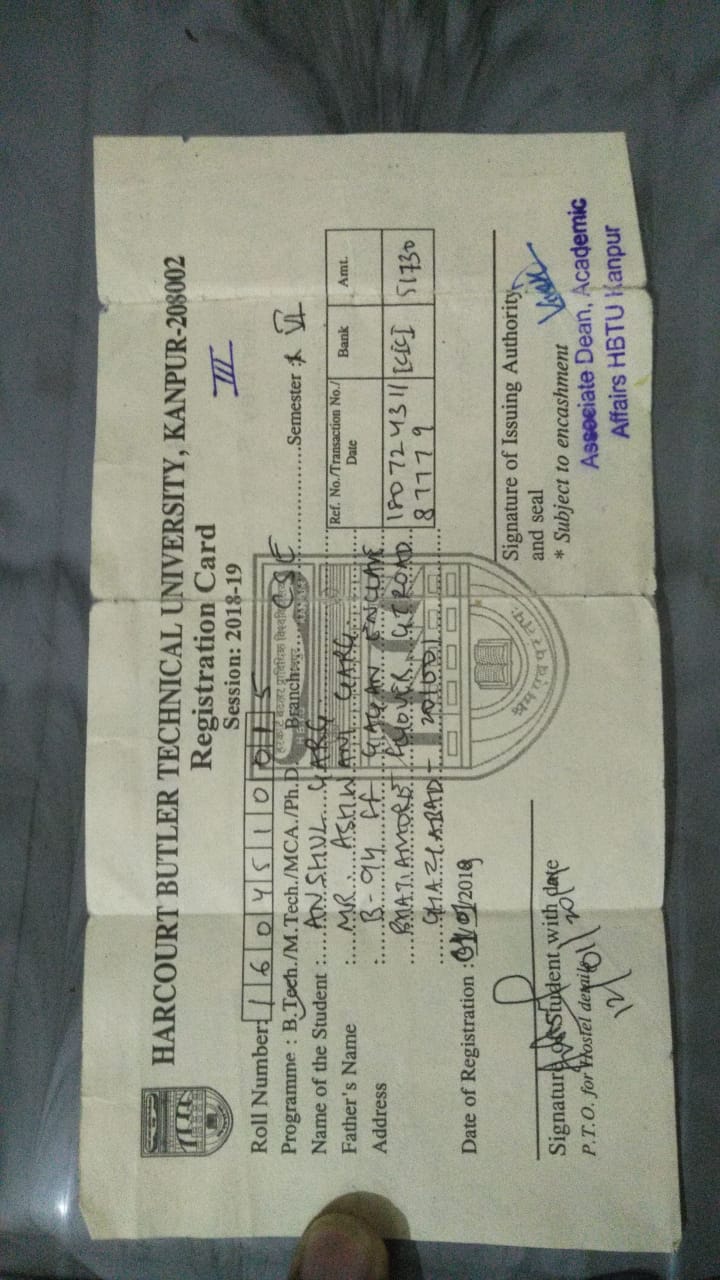 HARCOURT BUTLER TECHNICAL UNIVERSITY, KANPUR-208002
Registration Card
Session: 2018-19
III
Roll Number: 1604510015
Programme : B.Tech./M.Tech./MCA./Ph.D Branch: CSE Semester : VI
Name of the Student : ANSHUL GARG
Father's Name : MR. ASHWANI GARG
Address : B-94 FF GAGAN ENCLAVE
BHATIAMORE FLYOVER GT ROAD
GHAZIABAD - 201001
Ref. No./Transaction No./ Date Bank Amt.
180724311 ICICI 51730
87779
Date of Registration : 01/01/2019
Signature of Student with date
12/01/2019
P.T.O. for Hostel details
Signature of Issuing Authority
and seal
* Subject to encashment
Associate Dean, Academic
Affairs HBTU Kanpur